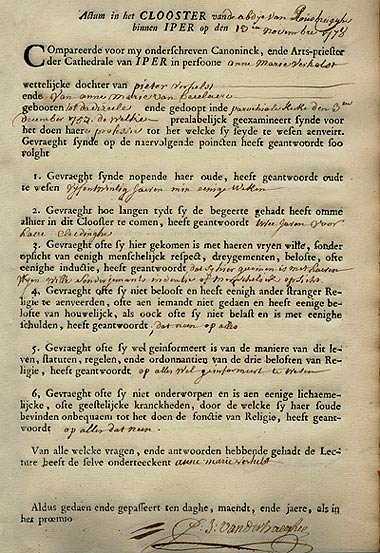 Actum in het CLOOSTER vande abdye van Rousbrugghe
binnen IPER op den 13en november 178
Compareerde voor my onderschreven Canoninck, ende Arts-priester
der Cathedrale van IPER in persoone anne Marie Verhulst
wettelijcke dochter van pieter verhulst
ende van anne marie van
gebooren tot ende gedoopt inde parochiale kercke den 3en
december 1757. de welke prealabelijck geexamineert synde voor
het doen haere professie tot het welcke sy seyde te wesen aenveirt.
Gevraeght synde op de naervolgende poincten heeft geantwoordt soo
volght
1. Gevraeght synde nopende haer oude, heeft geantwoordt
te wesen vyfentwintig Jaeren min eenige weken
2. Gevraeght hoe langen tydt sy de begeerte gehadt heeft omme
alhier in dit Clooster te comen, heeft geantwoordt twee jaeren voor
haere cleedinghe
3. Gevraeght ofte sy hier gekomen is met haeren vryen wille, sonder
opsicht van eenigh menschelijck respect, dreygementen, belofte, ofte
eenighe inductie, heeft geantwoordt dat sy hier gecomen is met haeren
vryen wille sonder jemants inductie of menschelyck opsicht
4. Gevraeght ofte sy niet belooft en heeft eenigh ander stranger Religie
te aenveerden, ofte aen iemandt niet gedaen en heeft eenige belofte
van houwelijck, als oock ofte sy niet belast en is met eenighe
schulden, heeft geantwoordt dat neen op alles
5. Gevraeght ofte sy wel geinformeert is van de maniere van dit leven,
statuten, regelen, ende ordonnantien van de drie beloften van Religie,
heeft geantwoordt op alles wel geinformeert te wesen
6, Gevraeght ofte sy niet onderworpen en is aen eenige lichaemelijcke,
ofte geestelijcke kranckheden, door de welcke sy haer soude
bevinden onbequaem tot het doen de fonctie van Religie, heeft geantwoordt
op alles dat neen.
Van alle welcke vragen, ende antwoorden hebbende gehadt de Lecture
heeft de selve onderteeckent anne marie verhulst
Aldus gedaen ende gepasseert ten daghe, maendt, ende jaere, als in
het prœmio